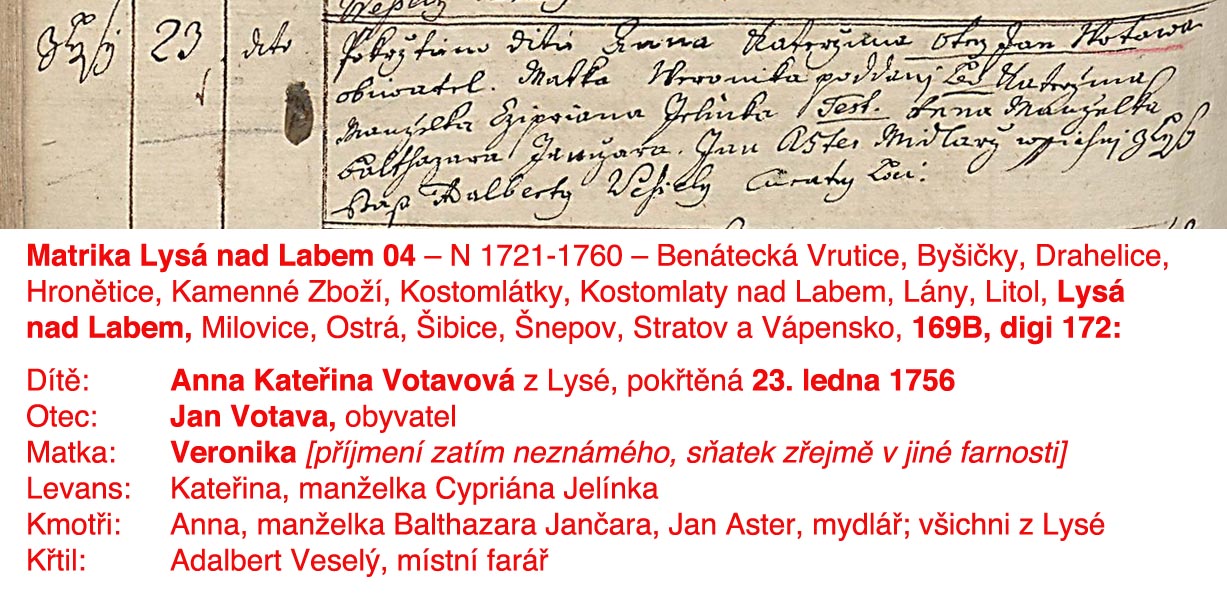 z Lysy 23 dito Pokrztieno ditie Anna Katerzina Otecz Jan Wotawa
obiwatel. Matka Weronika poddanj Lev. Katerzina
Manzelka Czipriana Jelinka Test. Anna Manzelka
Balthazara Janczara. Jan Aster Midlarz wssichnj z Lysy
Bap. Adalberty Wesely Curaty Loci.
Matrika Lysá nad Labem 04 – N 1721-1760 – Benátecká Vrutice, Byšičky, Drahelice,
Hronětice, Kamenné Zboží, Kostomlátky, Kostomlaty nad Labem, Lány, Litol, Lysá
nad Labem, Milovice, Ostrá, Šibice, Šnepov, Stratov a Vápensko, 169B, digi 172:
Dítě: Anna Kateřina Votavová z Lysé, pokřtěná 23. ledna 1756
Otec: Jan Votava, obyvatel
Matka: Veronika [příjmení zatím neznámého, sňatek zřejmě v jiné farnosti]
Levans: Kateřina, manželka Cypriána Jelínka
Kmotři: Anna, manželka Balthazara Jančara, Jan Aster, mydlář; všichni z Lysé
Křtil: Adalbert Veselý, místní farář